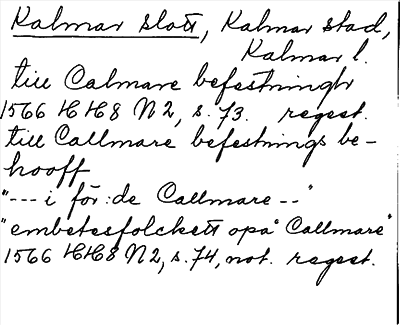 Kalmar slott, Kalmar stad,
Kalmar l.
till Calmare befestningh
1566 HH8 N2, s. 73. regest.
till Callmare befestnings be-
hooff
"--- i för:de Callmare --"
"embetesfolckett opå Callmare"
1566 HH8 N2, s. 74, not. regest.